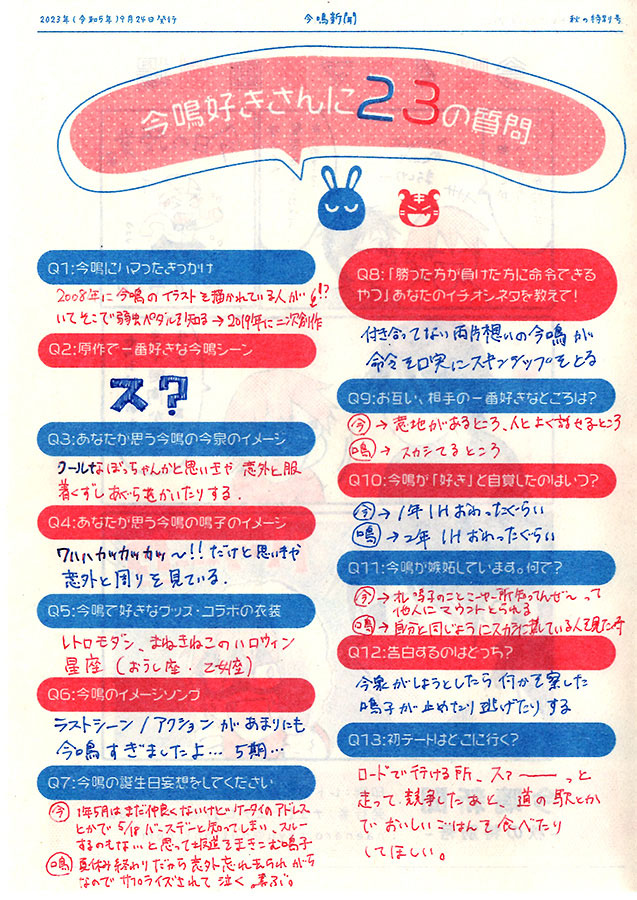 2023年(令和5年)9月24日発行
今鳴新聞
秋の特別号
今鳴好きさんに23の質問
Q1:今鳴にハマったきっかけ
2008年に今鳴のイラストを描かれている人が
いてそこで弱虫ペダルを知る→2019年に二次創作
Q2:原作で一番好きな今鳴シーン
ス?
Q3:あなたが思う今鳴の今泉のイメージ
クールなぼっちゃんかと思いきや 意外と服
着くずしあぐらもかいたりする.
Q4:あなたが思う今鳴の鳴子のイメージ
ワハハカッカッカッ〜!!だけと思いきや
意外と周りを見ている.
Q5:今鳴で好きなグッズ・コラボの衣装
レトロモダン、まねきねこのハロウィン
星座(おうし座・乙女座)
Q6:今鳴のイメージソング
ラストシーン/アクションがあまりにも
今鳴すぎましたよ…5期…
Q7:今鳴の誕生日妄想をしてください
今→1年5月はまだ仲良くないけどケータイのアドレス
とかで5/18バースデーと知ってしまい、スルー
するのもな…と思って
をまきこむ鳴子
鳴 夏休み終わりだから意外忘れ去られがち
なのでサプライズされて泣く。
Q8:「勝った方が負けた方に命令できる
やつ」あなたのイチオシネタを教えて!
付き合ってない両片想いの今鳴が
命令を口実にスキンシップをとる
Q9:お互い、相手の一番好きなところは?
今→意地があるところ、人とよく話せるところ
鳴→スカシてるところ
Q10:今鳴が「好き」と自覚したのはいつ?
今→1年IHおわったぐらい
鳴→2年IHおわったぐらい
Q11:今鳴が嫉妬しています。何で?
今→オレ鳴子のここーゆー所知ってんぜ〜って
他人にマウントとられる
鳴→自分と同じようにスカシに
している人を見た時
Q12:告白するのはどっち?
今泉がしようとしたら何かを察した
鳴子が止めたり逃げたりする
Q13:初デートはどこに行く?
ロードで行ける所、スァーーっと
走って競争したあと、道の駅とか
でおいしいごはんを食べたり
してほしい。